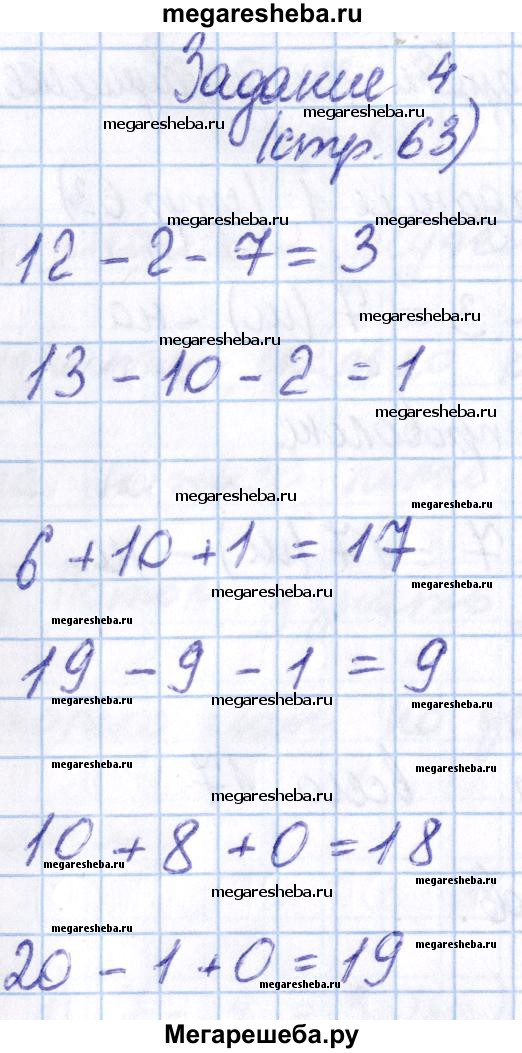 megaresheba.ru
Задание 4
megaresheba.ru
megaresheba.ru
(стр. 63)
megaresheba.ru
megaresheba.ru
12 - 2 - 7 = 3
megaresheba.ru
megaresheba.ru
13 - 10 - 2 = 1
megaresheba.ru
megaresheba.ru
megaresheba.ru
6 + 10 + 1 = 17
megaresheba.ru
megaresheba.ru
19 - 9 - 1 = 9
megaresheba.ru
megaresheba.ru
megaresheba.ru
megaresheba.ru
megaresheba.ru
megaresheba.ru
10 + 8 + 0 = 18
megaresheba.ru
megaresheba.ru
megaresheba.ru
megaresheba.ru
megaresheba.ru
20 - 1 + 0 = 19
megaresheba.ru
Мегарешеба.ру